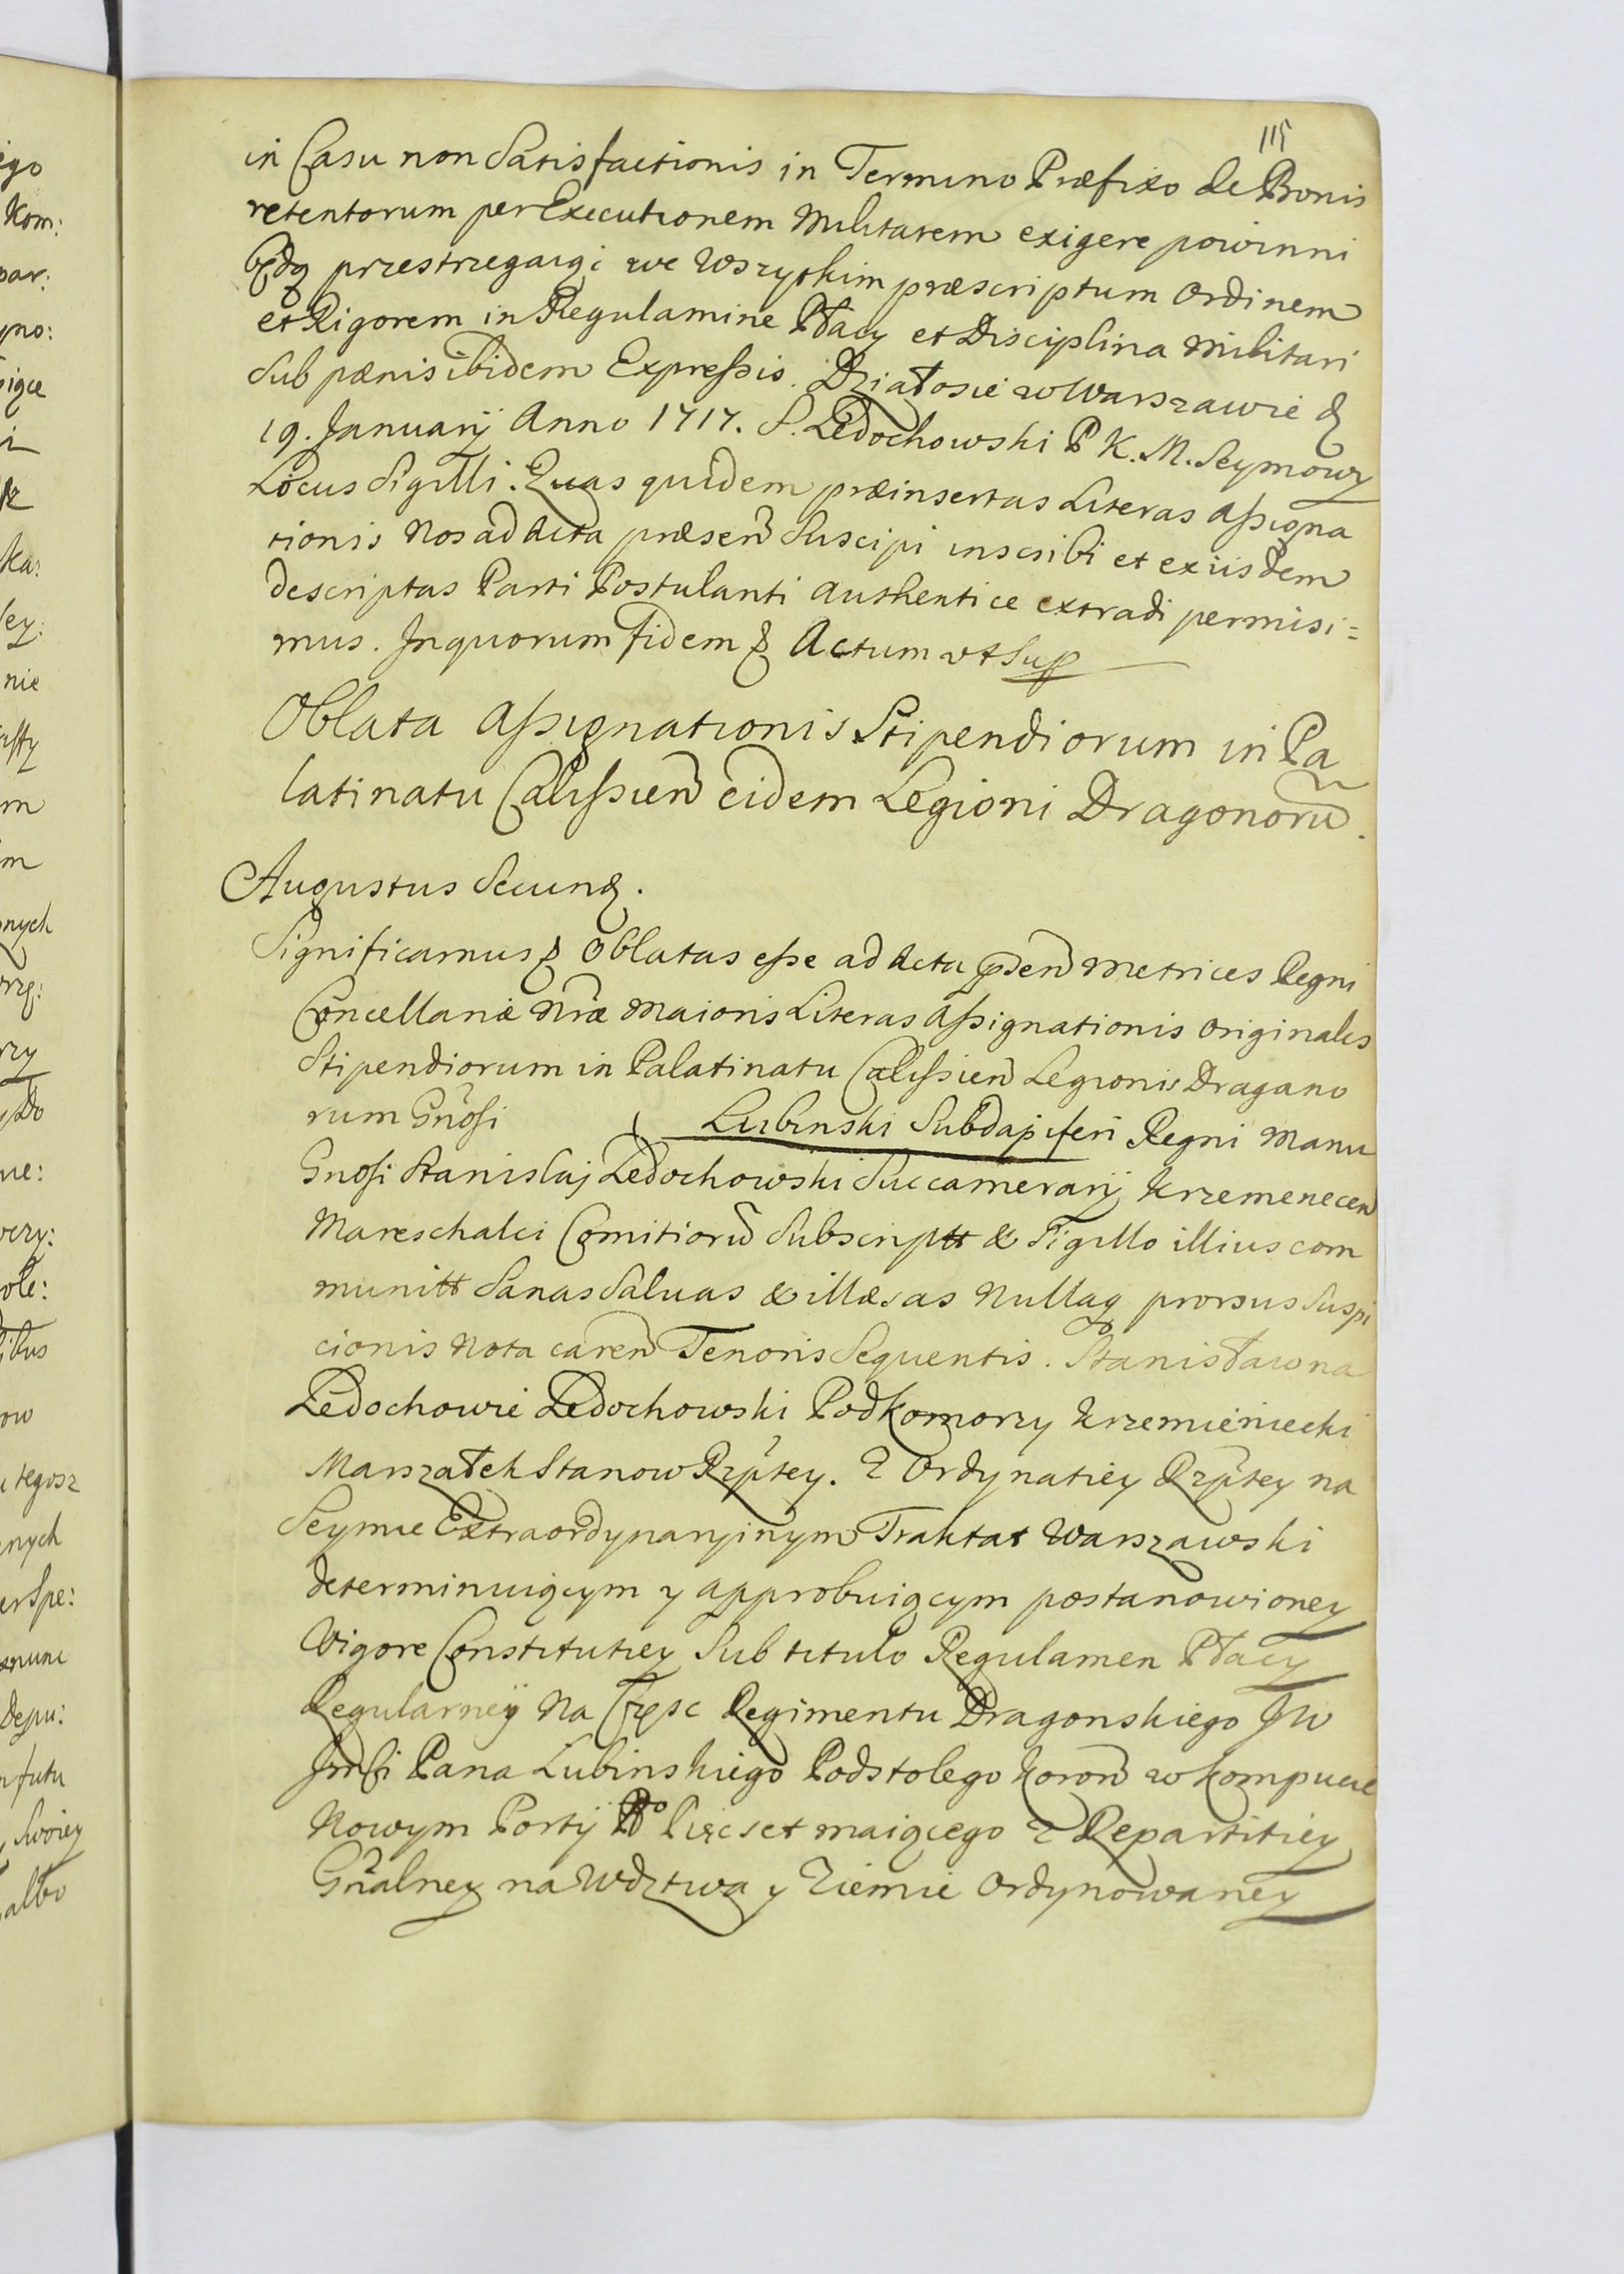 115
in Casu non Satisfactionis in Termino Præfixo de Bonis
retentorum per Executionem Militarem exigere powinni
będą przestrzegaiąc we Wszytkim præscriptum Ordinem
et Rigorem in Regulamine Płacy et Disciplina Militari
Sub pænis ibidem Expressis. Działosie w Warszawie d
19. Januarij Anno 1717. S. Ledochowski P K. M. Seymowy
Locus Sigilli. Quas quidem præinsertas Literas Assigna
tionis Nos ad Acta præsen Suscipi inscribi et ex iisdem
descriptas Parti Postulanti authentice extradi permisi=
mus. In quorum fidem & Actum ut Sup
Oblata Assignationis Stipendiorum in Pa
latinatu Calissien eidem Legioni Dragonorū.
Augustus Secund.
Significamus & Oblatas esse ad Acta pnsen Metrices Regni
Cancellariæ Nræ Maioris Literas Assignationis originales
Stipendiorum in Palatinatu Calissien Legionis Dragano
rum Gnosi Lubinski Subdapiferi Regni Manu
Gnosi Stanislaj Ledochowski Succamerarij Krzemenecen
Mareschalci Comitiorū Subscriptt & Sigillo illius com
munitt Sanas Saluas & illæsas Nullaq prorsus Suspi
cionis Nota caren Tenoris Sequentis. Stanisław na
Ledochowie Ledochowski Podkomorzy Krzemieniecki
Marszałek Stanow Rzptey. Z Ordynatiey Rzptey na
Seymie Extraordynaryinym Traktat Warszawski
determinuiącym y approbuiącym postanowioney
Vigore Constitutiey Sub titulo Regulamen Płacy
Regularneÿ Na Częsc Regimentu Dragonskiego JW
Jmsci Pana Lubinskiego Podstolego Koron w Kompucie
Nowym Portÿ Pięcset maiącego Z Repartitiey
Gnralney na Wdztwa y Ziemie Ordynowaney